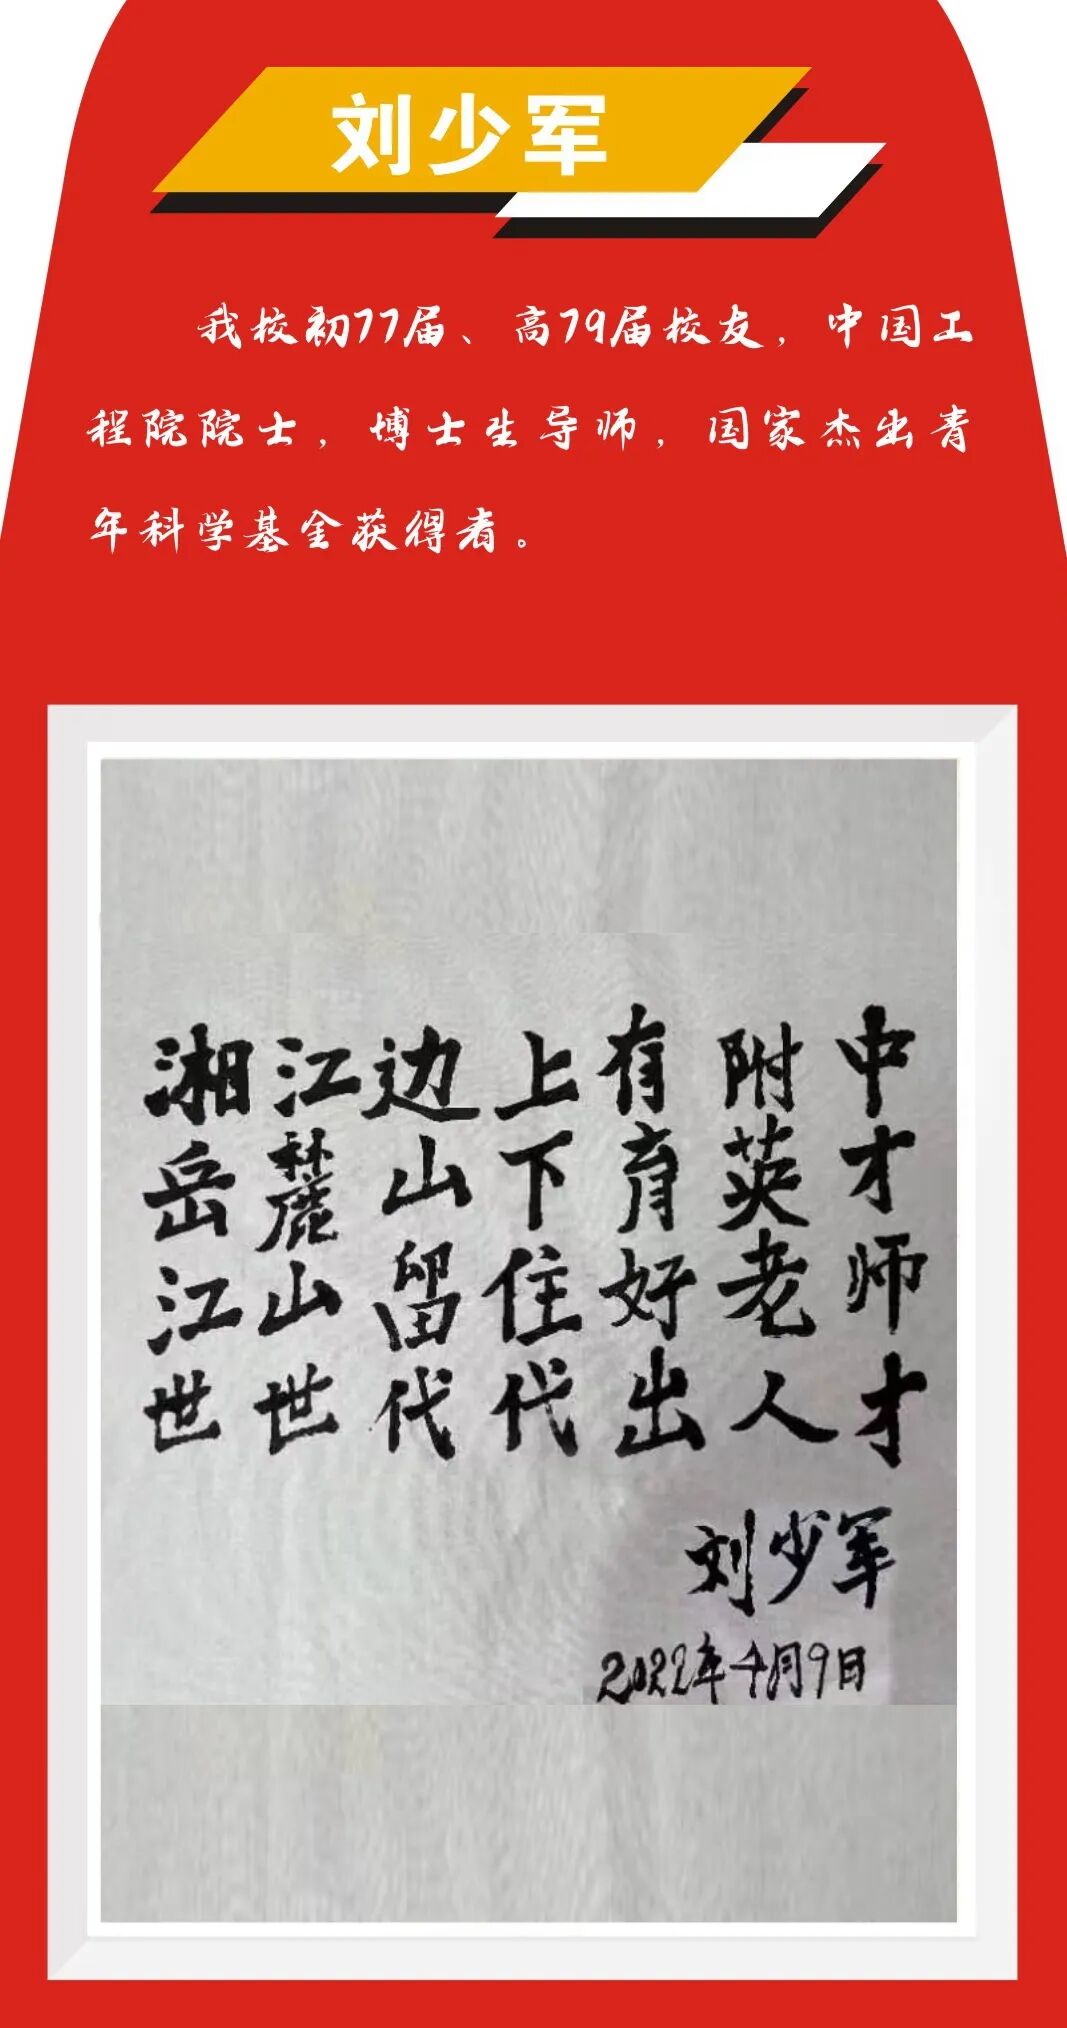 刘少军
我校初77届、高79届校友，中国工
程院院士，博士生导师，国家杰出青
年科学基金获得者。
湘江边上有附中
岳麓山下育英才
江山留住好老师
世世代代出人才
刘少军
2022年4月9日